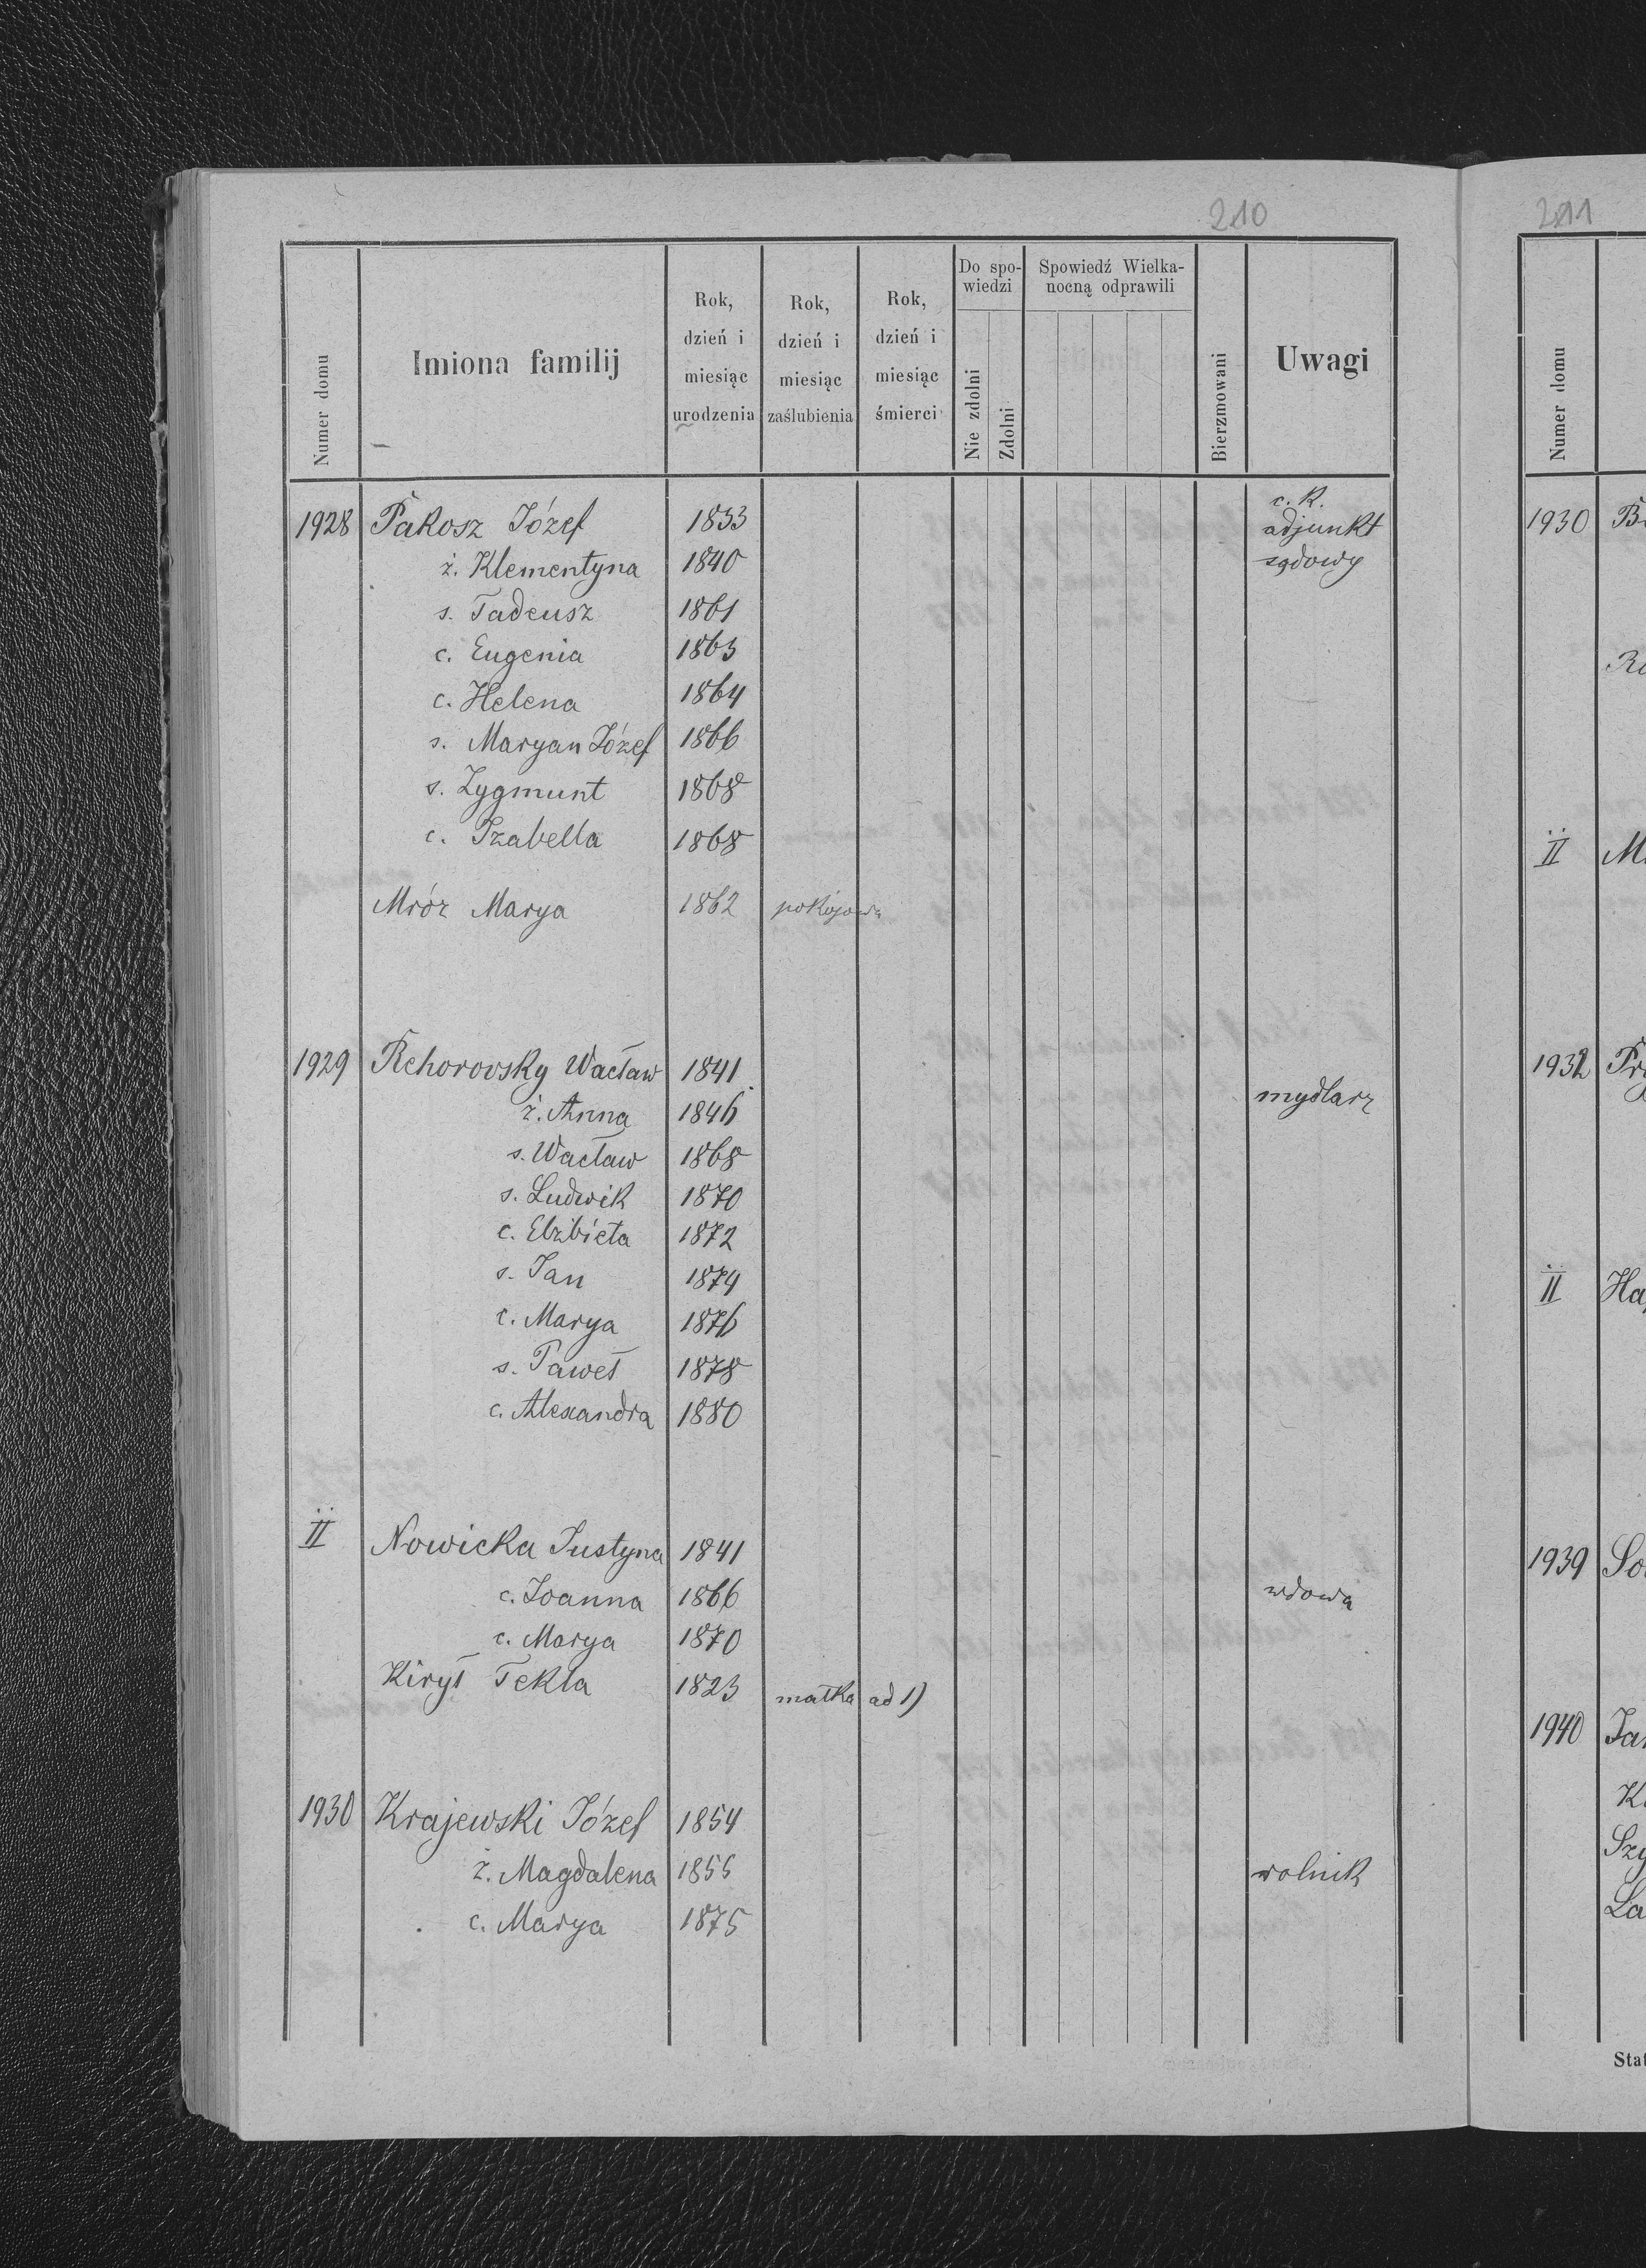 210
Numer domu | Imiona familij | Rok, dzień i miesiąc urodzenia | Rok, dzień i miesiąc zaślubienia | Rok, dzień i miesiąc śmierci | Do spowiedzi | Nie zdolni | Zdolni | Spowiedź Wielkanocną odprawili | Bierzmowani | Uwagi
1928 Pakosz Józef 1833 c. k. adjunkt
ż. Klementyna 1840 sądowy
s. Tadeusz 1861
c. Eugenia 1863
c. Helena 1864
s. Maryan Józef 1866
s. Zygmunt 1868
c. Izabella 1868
Mróz Marya 1862 pokojowa
1929 Rehorovsky Wacław 1841
ż. Anna 1846 mydlarz
s. Wacław 1868
s. Ludwik 1870
c. Elżbieta 1872
s. Jan 1874
c. Marya 1876
s. Paweł 1878
c. Alexandra 1880
II Nowicka Justyna 1841
c. Joanna 1866 wdowa
c. Marya 1870
Kirył Tekla 1823 matka ad 1)
1930 Krajewski Józef 1854
ż. Magdalena 1855 rolnik
c. Marya 1875
211
Numer domu
1930
II
1932
II
1939
1940